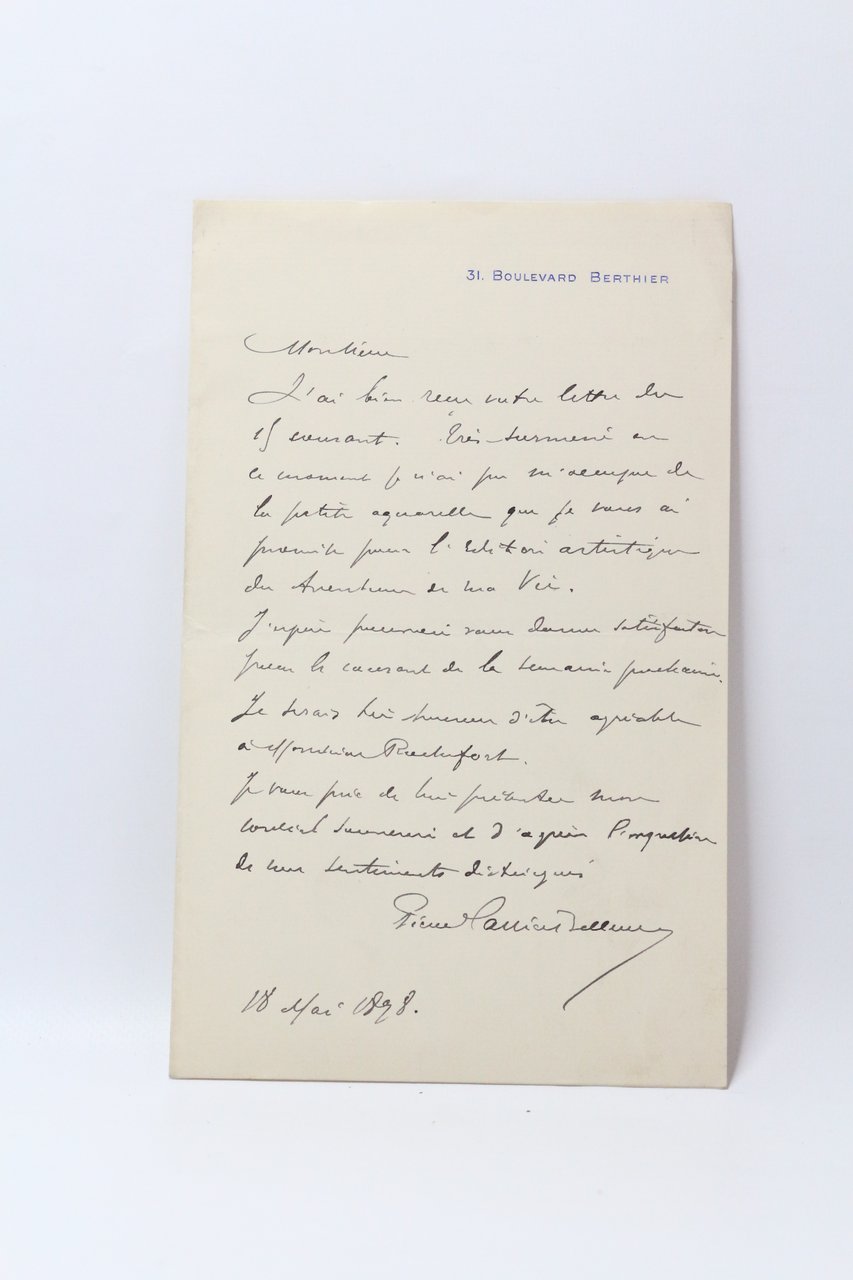 31. BOULEVARD BERTHIER
Monsieur
J'ai bien reçu votre lettre du
15 courant. Très surmené en
ce moment je n'ai pu m'occuper de
la petite aquarelle que je vous ai
promise pour l'Edition artistique
des Aventures de ma Vie.
J'espère pouvoir vous donner satisfaction
pour le courant de la semaine prochaine.
Je serais très heureux d'être agréable
à Monsieur Rochefort.
Je vous prie de lui présenter mon
cordial souvenir et d'agréer l'expression
de mes sentiments distingués
Pierre Carrier Belleuse
18 Mai 1898.